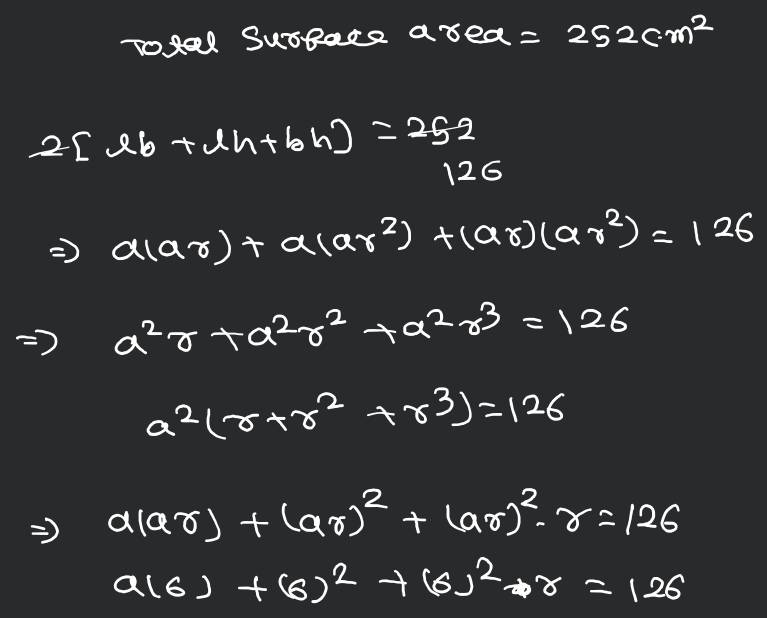 Total Surface area = 252cm²
2[lb + lh + bh] = 252
126
⇒ a(ar) + a(ar²) + (ar)(ar²) = 126
⇒ a²r + a²r² + a²r³ = 126
a²(r + r² + r³) = 126
⇒ a(ar) + (ar)² + (ar)². r = 126
a(6) + (6)² + (6)² r = 126